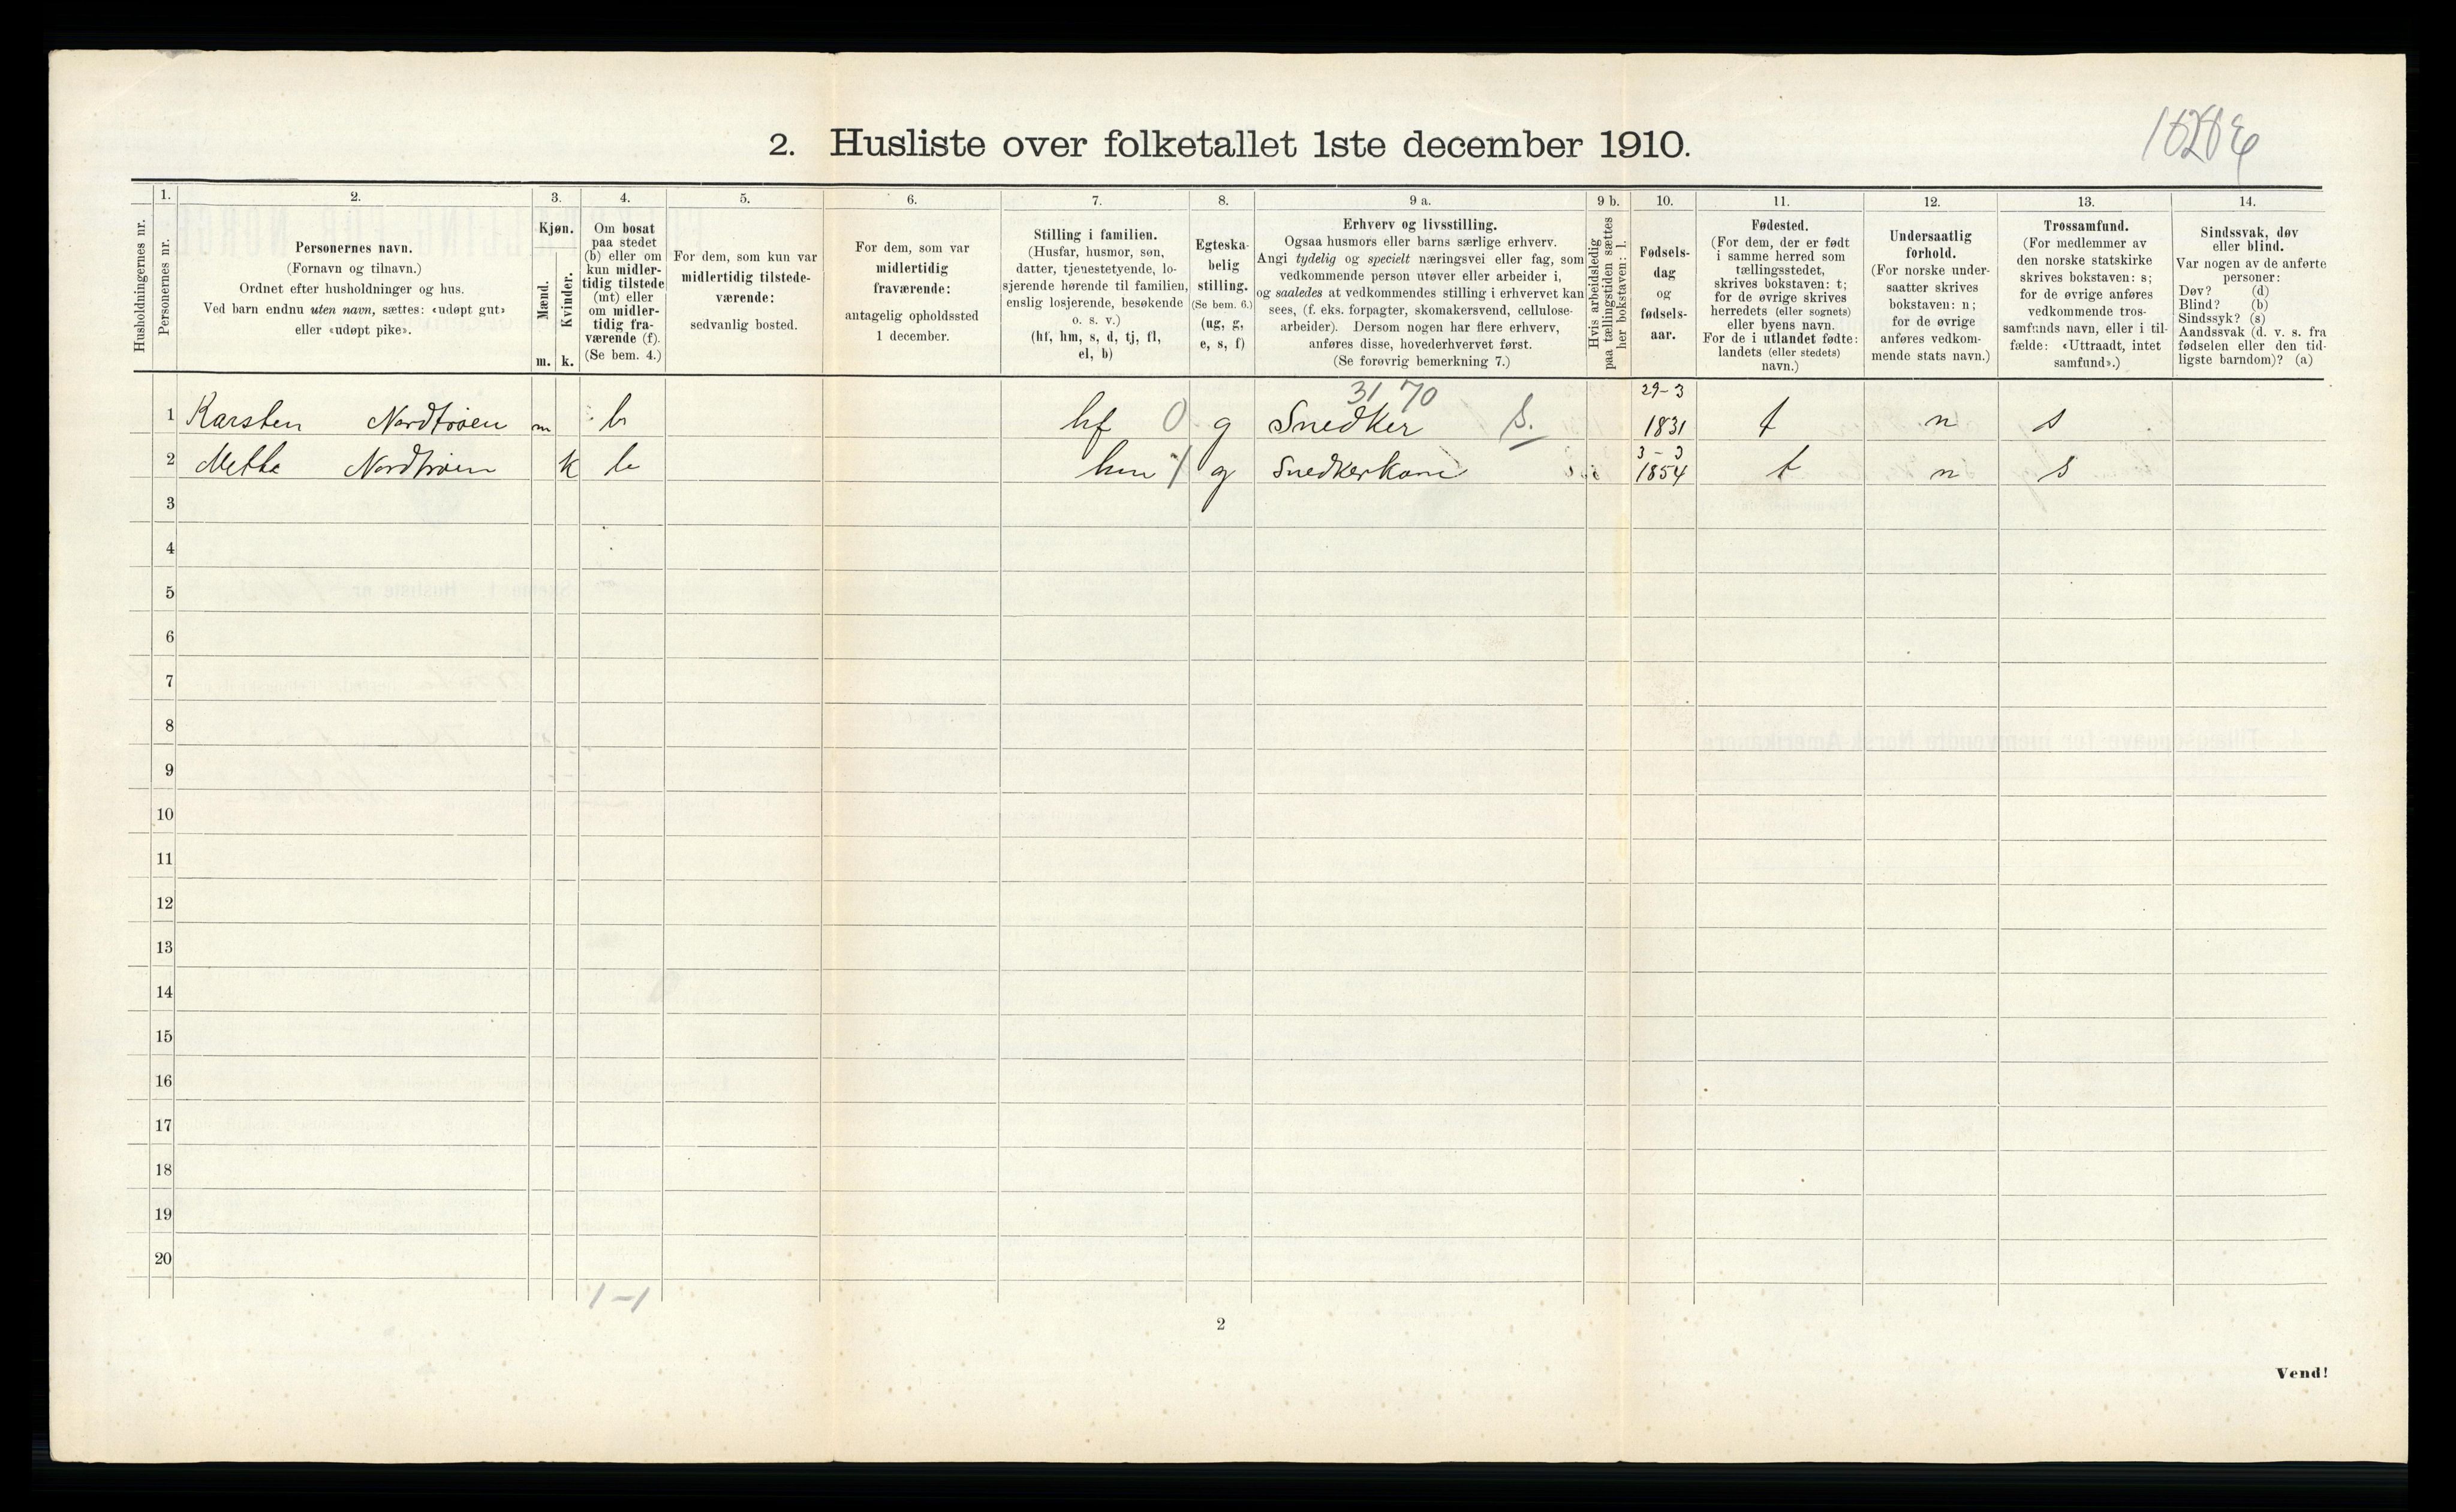 2. Husliste over folketallet 1ste december 1910.
Husholdningernes nr.
1.
Personernes nr.
2.
Personernes navn.
(Fornavn og tilnavn.)
Ordnet efter husholdninger og hus.
Ved barn endnu uten navn, sættes: «udøpt gut»
eller «udøpt pike».
3.
Kjøn.
Mænd.
Kvinder.
m. k.
4.
Om bosat
paa stedet
(b) eller om
kun midler-
tidig tilstede
(mt) eller
om midler-
tidig fra-
værende (f).
(Se bem. 4.)
5.
For dem, som kun var
midlertidig tilstede-
værende:
sedvanlig bosted.
6.
For dem, som var
midlertidig
fraværende:
antagelig opholdssted
1 december.
7.
Stilling i familien.
(Husfar, husmor, søn,
datter, tjenestetyende, lo-
sjerende hørende til familien,
enslig losjerende, besøkende
o. s. v.)
(hf, hm, s, d, tj, fl,
el, b)
8.
Egteska-
belig
stilling.
(Se bem. 6.)
(ug, g,
e, s, f)
9 a.
Erhverv og livsstilling.
Ogsaa husmors eller barns særlige erhverv.
Angi tydelig og specielt næringsvei eller fag, som
vedkommende person utøver eller arbeider i,
og saaledes at vedkommendes stilling i erhvervet kan
sees, (f. eks. forpagter, skomakersvend, cellulose-
arbeider). Dersom nogen har flere erhverv,
anføres disse, hovederhvervet først.
(Se forøvrig bemerkning 7.)
9 b.
Hvis arbeidsledig
paa tællingstiden sættes
her bokstaven: l.
10.
Fødsels-
dag
og
fødsels-
aar.
11.
Fødested.
(For dem, der er født
i samme herred som
tællingsstedet,
skrives bokstaven: t;
for de øvrige skrives
herredets (eller sognets)
eller byens navn.
For de i utlandet fødte:
landets (eller stedets)
navn.)
12.
Undersaatlig
forhold.
(For norske under-
saatter skrives
bokstaven: n;
for de øvrige
anføres vedkom-
mende stats navn.)
13.
Trossamfund.
(For medlemmer av
den norske statskirke
skrives bokstaven: s;
for de øvrige anføres
vedkommende tros-
samfunds navn, eller i til-
fælde: «Uttraadt, intet
samfund».)
14.
Sindssvak, døv
eller blind.
Var nogen av de anførte
personer:
Døv? (d)
Blind? (b)
Sindssyk? (s)
Aandssvak (d. v. s. fra
fødselen eller den tid-
ligste barndom)? (a)
31 70 29-3
1 Karsten Nordtrøen m b hf 0 g Snedker S. 1831 t n s
3-3
2 Mette Nordtrøen k b hm 1 g Snedkerkone 1854 t n s
3
4
5
6
7
8
9
10
11
12
13
14
15
16
17
18
19
20
1-1
2
Vend!